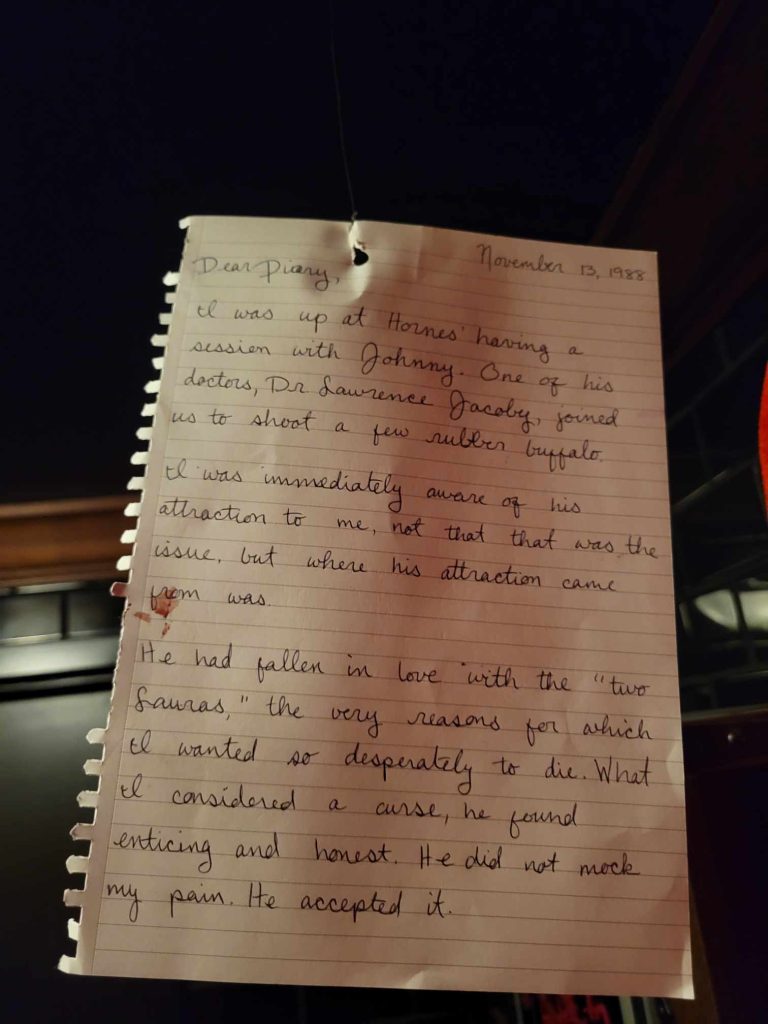 November 13, 1988
Dear Diary,
I was up at Hornes' having a
session with Johnny. One of his
doctors, Dr Lawrence Jacoby, joined
us to shoot a few rubber buffalo.
I was immediately aware of his
attraction to me, not that that was the
issue, but where his attraction came
from was.
He had fallen in love with the "two
Lauras," the very reasons for which
I wanted so desperately to die. What
I considered a curse, he found
enticing and honest. He did not mock
my pain. He accepted it.